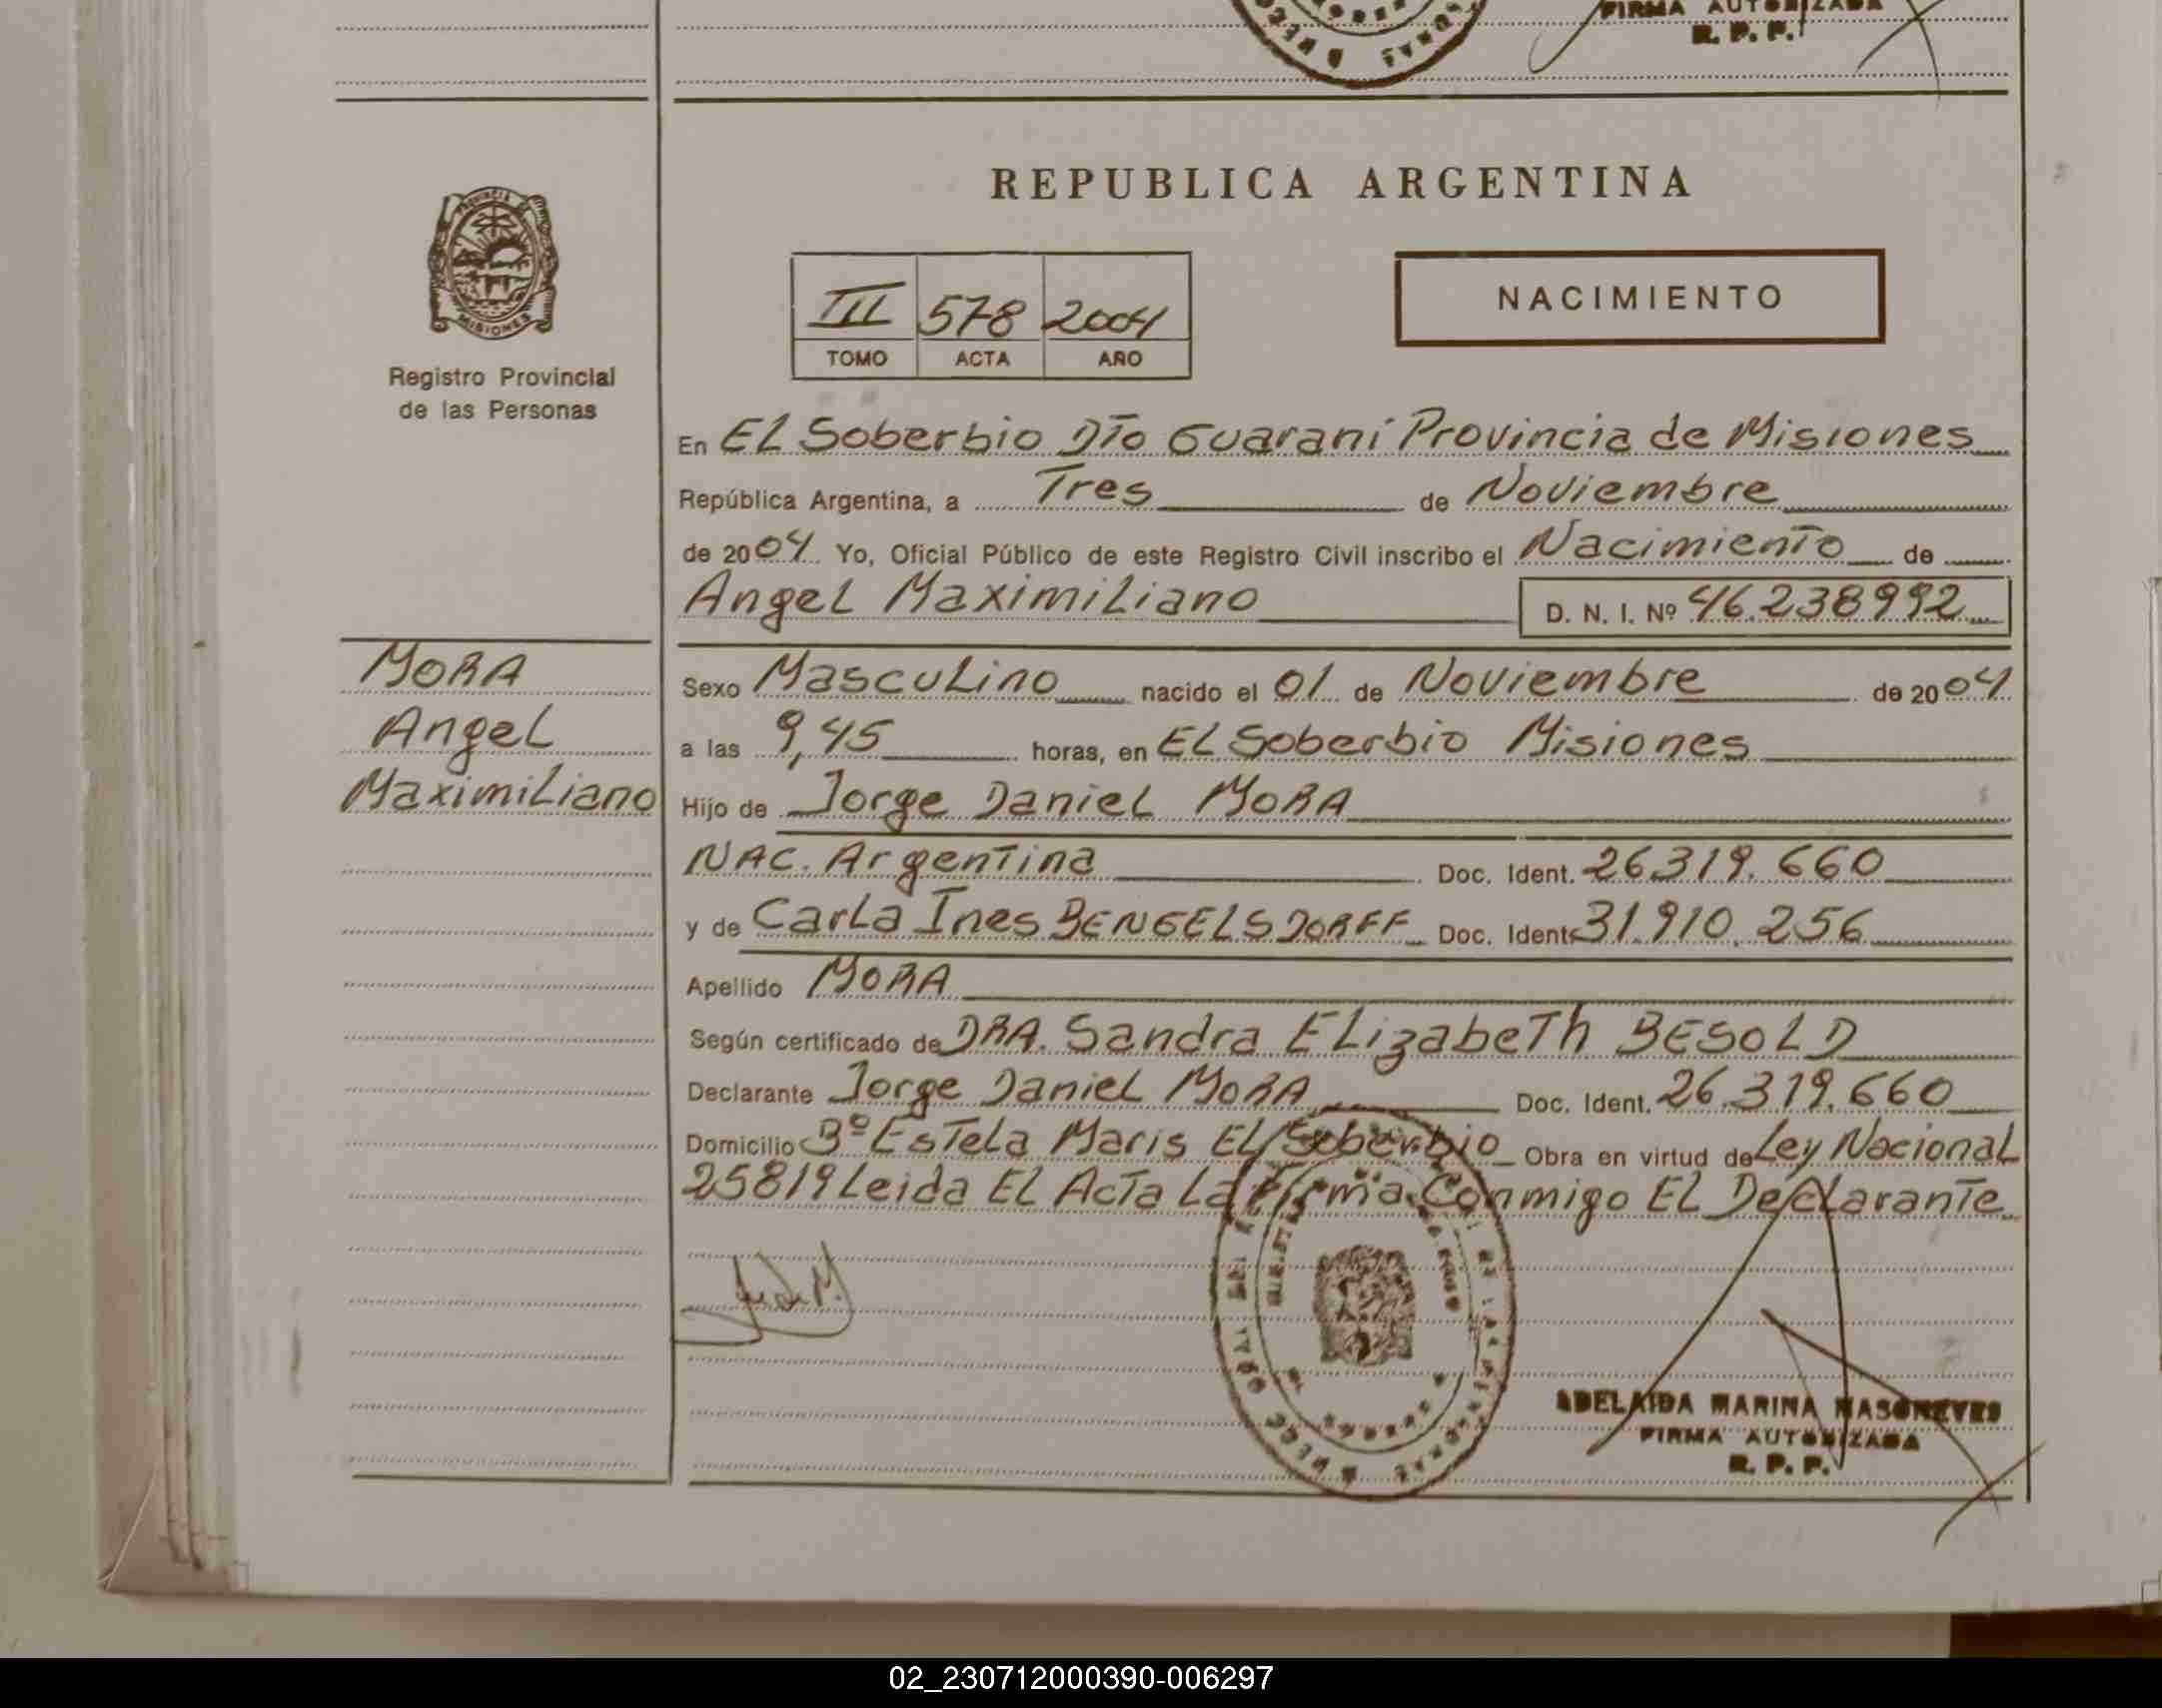 FIRMA AUTORIZADA
R. P. P.
REPUBLICA ARGENTINA
PROVINCIA DE
MISIONES
Registro Provincial
de las Personas
III 578 2004
TOMO ACTA AÑO
NACIMIENTO
En El Soberbio Dto Guaraní Provincia de Misiones
República Argentina, a Tres de Noviembre
de 2004 Yo, Oficial Público de este Registro Civil inscribo el Nacimiento de
Angel Maximiliano D. N. I. Nº 46.238992
MORA
Angel
Maximiliano
Sexo Masculino nacido el 01 de Noviembre de 2004
a las 9,45 horas, en El Soberbio Misiones
Hijo de Jorge Daniel MORA
NAC. Argentina Doc. Ident. 26319.660
y de Carla Ines BENGELSDORFF Doc. Ident. 31.910.256
Apellido MORA
Según certificado de DRA. Sandra Elizabeth BESOLD
Declarante Jorge Daniel MORA Doc. Ident. 26.319.660
Domicilio Bº Estela Maris El Soberbio Obra en virtud de Ley Nacional
25819 Leida El Acta La Firma Conmigo El Declarante
ADELAIDA MARINA
FIRMA AUTORIZADA
R. P. P.
02_230712000390-006297